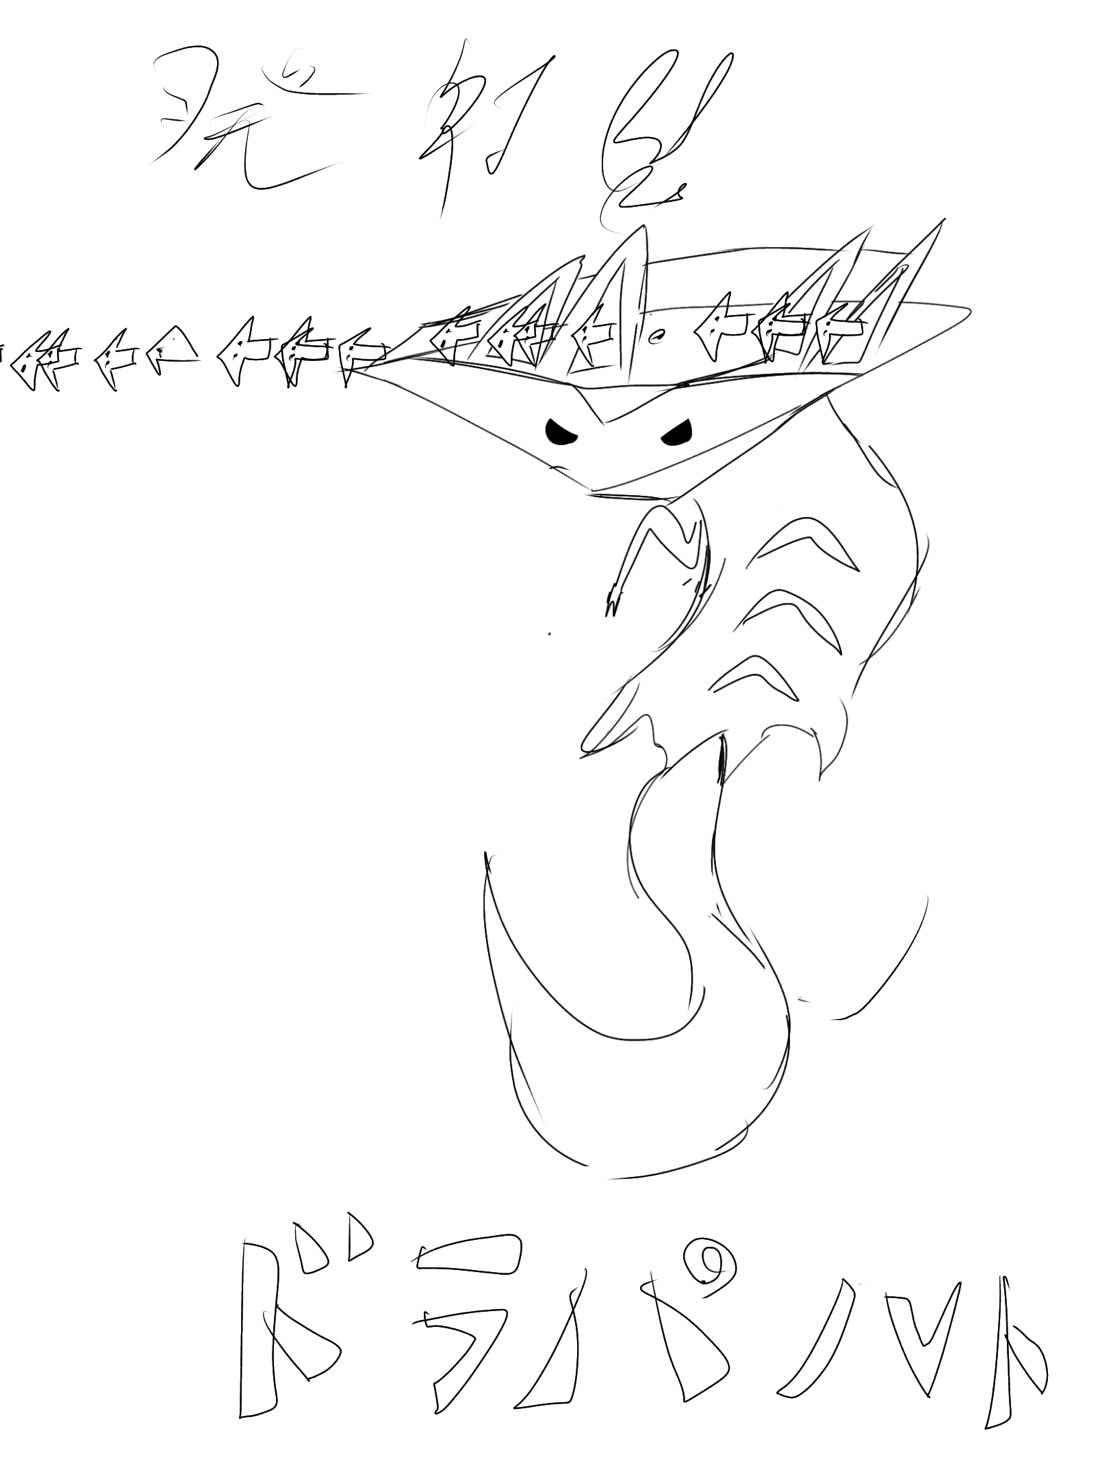 発射
ドラパルト